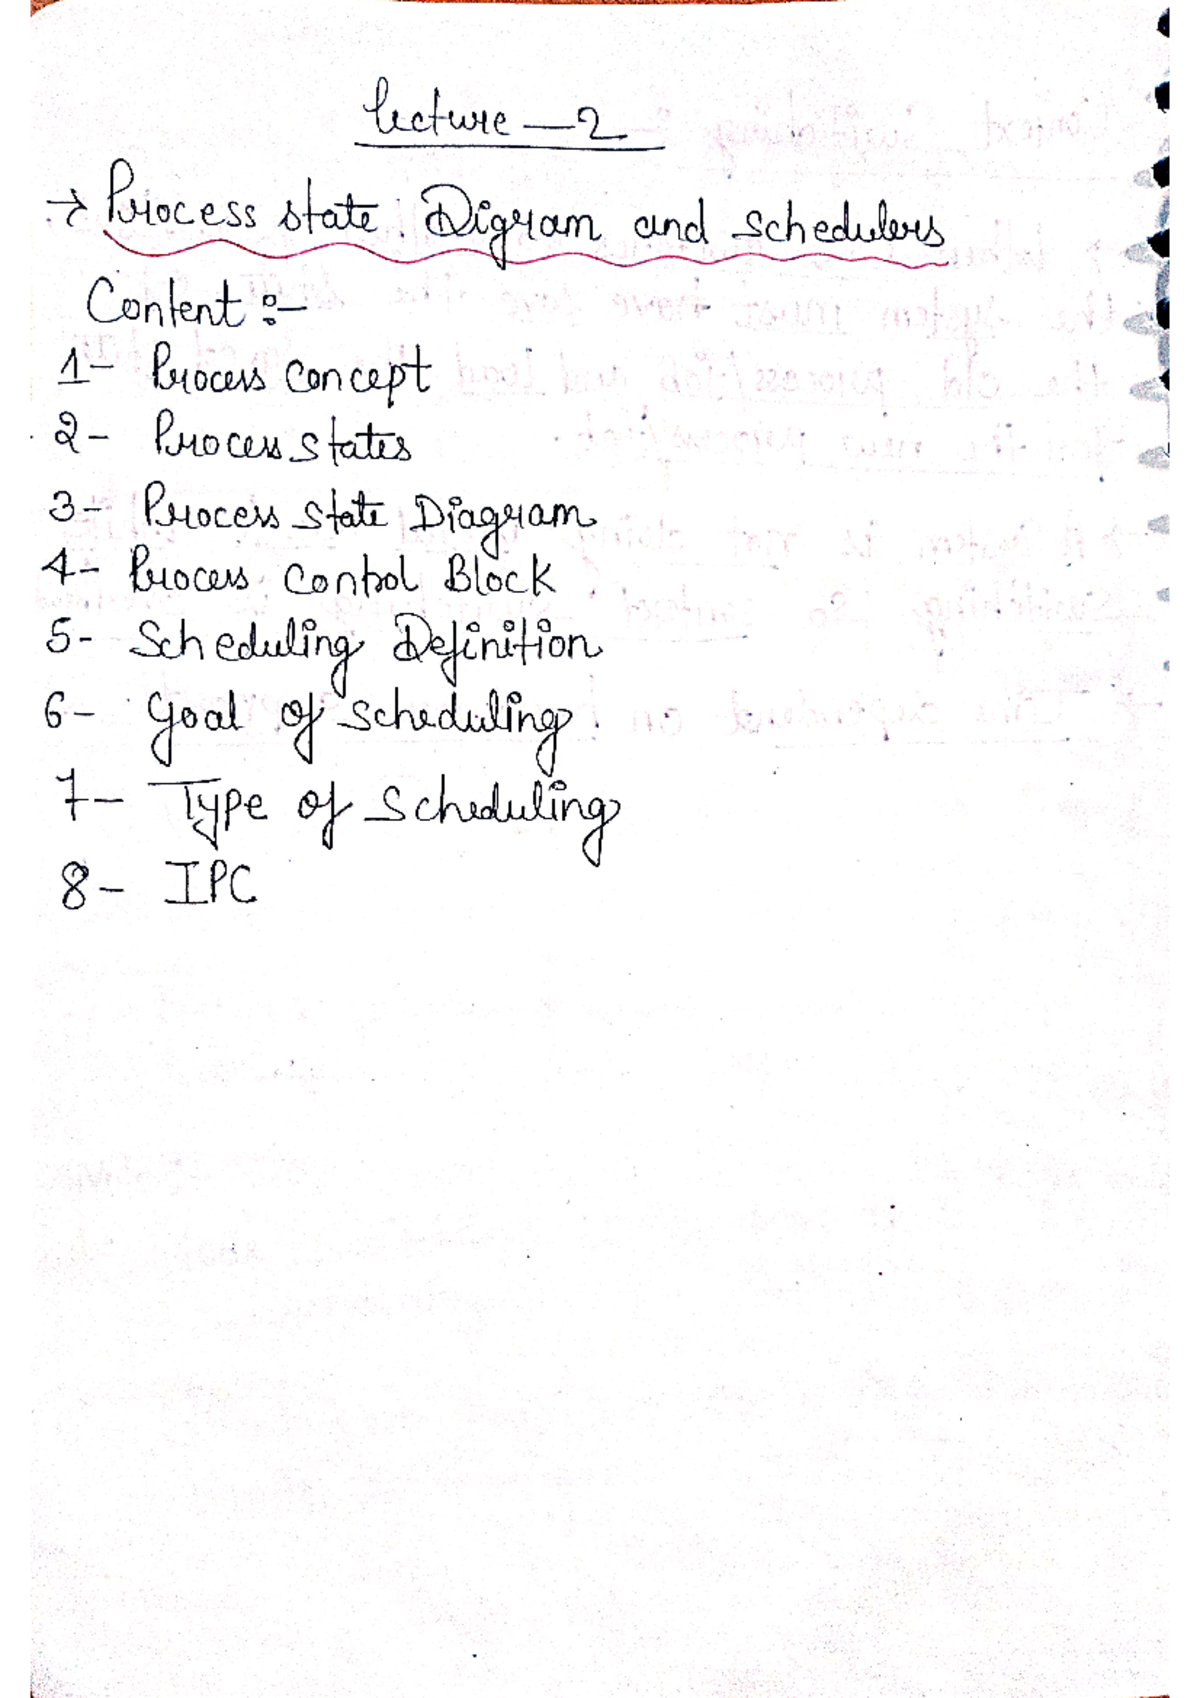 Lecture — 2
→ Process state : Digram and Schedulers
Content :-
1- Process Concept
2- Process States
3- Process State Diagram
4- Process Control Block
5- Scheduling Definition
6- Goal of Scheduling
7- Type of Scheduling
8- IPC